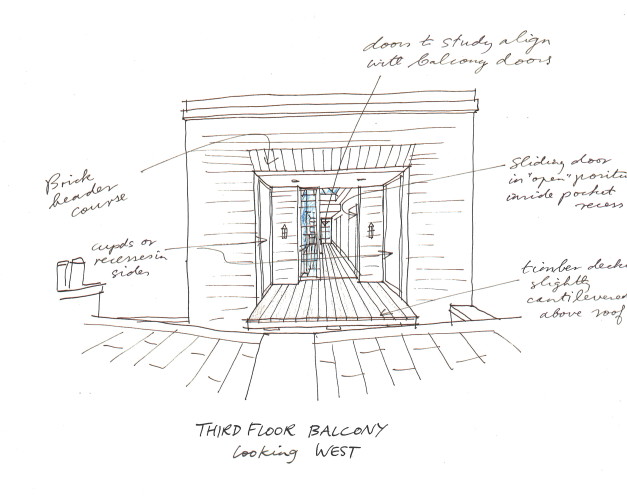 doors to study align
with balcony doors
Brick
header
course
Sliding door
in "open" positi
inside pocket
recess
cupds or
recesses in
sides
timber deck
slightly
cantilevered
above roof
THIRD FLOOR BALCONY
looking WEST